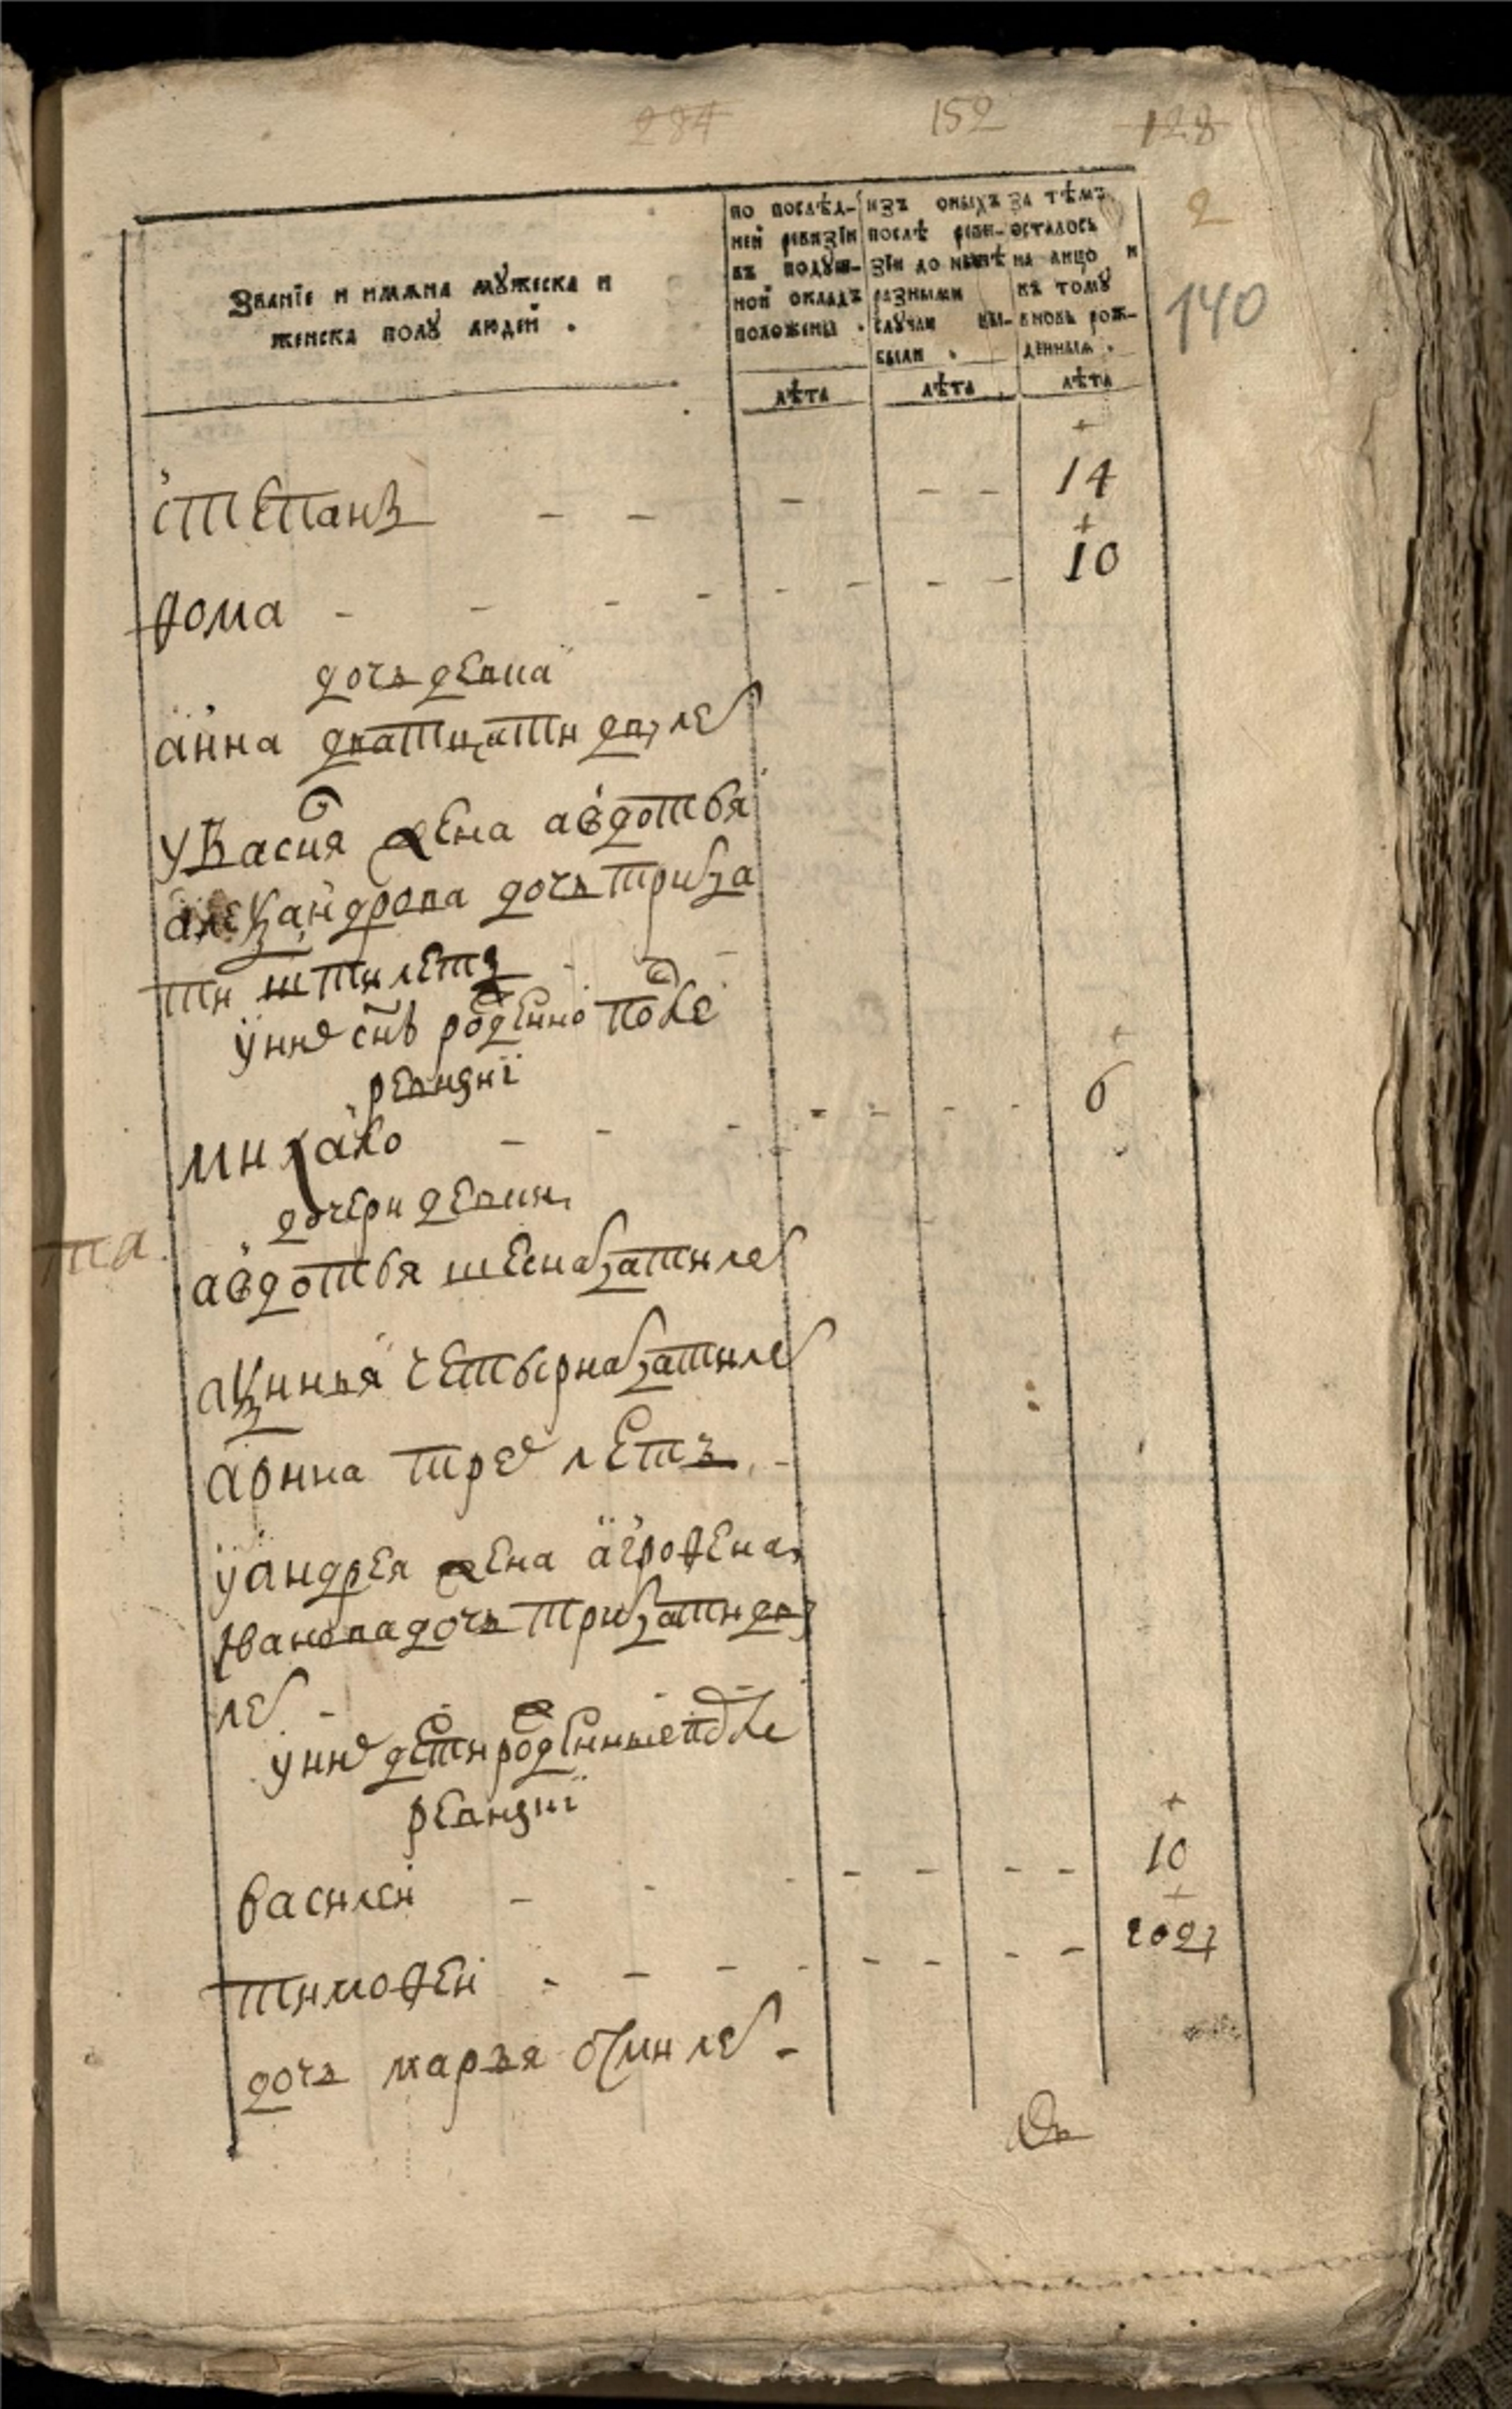 284 152 128
2
140
Званїе и имѧна мꙋжеска и
женска полꙋ людей .
по послѣд-
ней ревизїи
въ подꙋш-
ной окладъ
положены .
лѣта
изъ оныхъ
послѣ реви-
зїи до нынѣ
разными
слꙋчаи вы-
были .
лѣта
за тѣмъ
осталось
на лицо и
къ томꙋ
вновь рож-
денныѧ .
лѣта
степанъ - - - - - 14
фома - - - - - - - - 10
дочь девка
анна дватцати дву лет
у васия жена авдотья
алеѯандрова дочь тритца
ти шти летъ
у них снъ рожденно после
ревизиї
михаило - - - - - - - 6
дочери девки
та
авдотья шеснатцати лет
аѯинья четырнатцати лет
арина трех летъ
у андрея жена агрофена
ивановадочь тритцати дву
лет -
у них дети рожденные после
ревизиї
василеи - - - - - - - 10
тимофеи - - - - - - - - -
дочь марья осми лет -